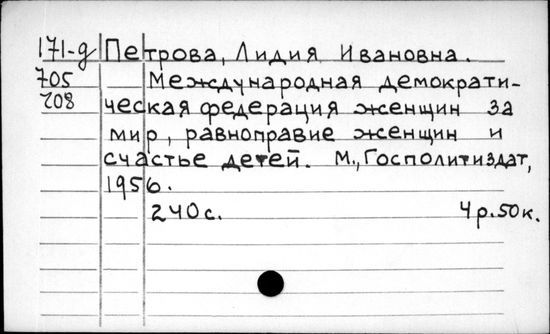 171-д Петрова, Лидия Ивановна.
705 Международная демократи-
708 ческая федерация женщин за
мир, равноправие женщин и
счастье детей. М., Госполитиздат,
1956.
240с. 4р.50к.